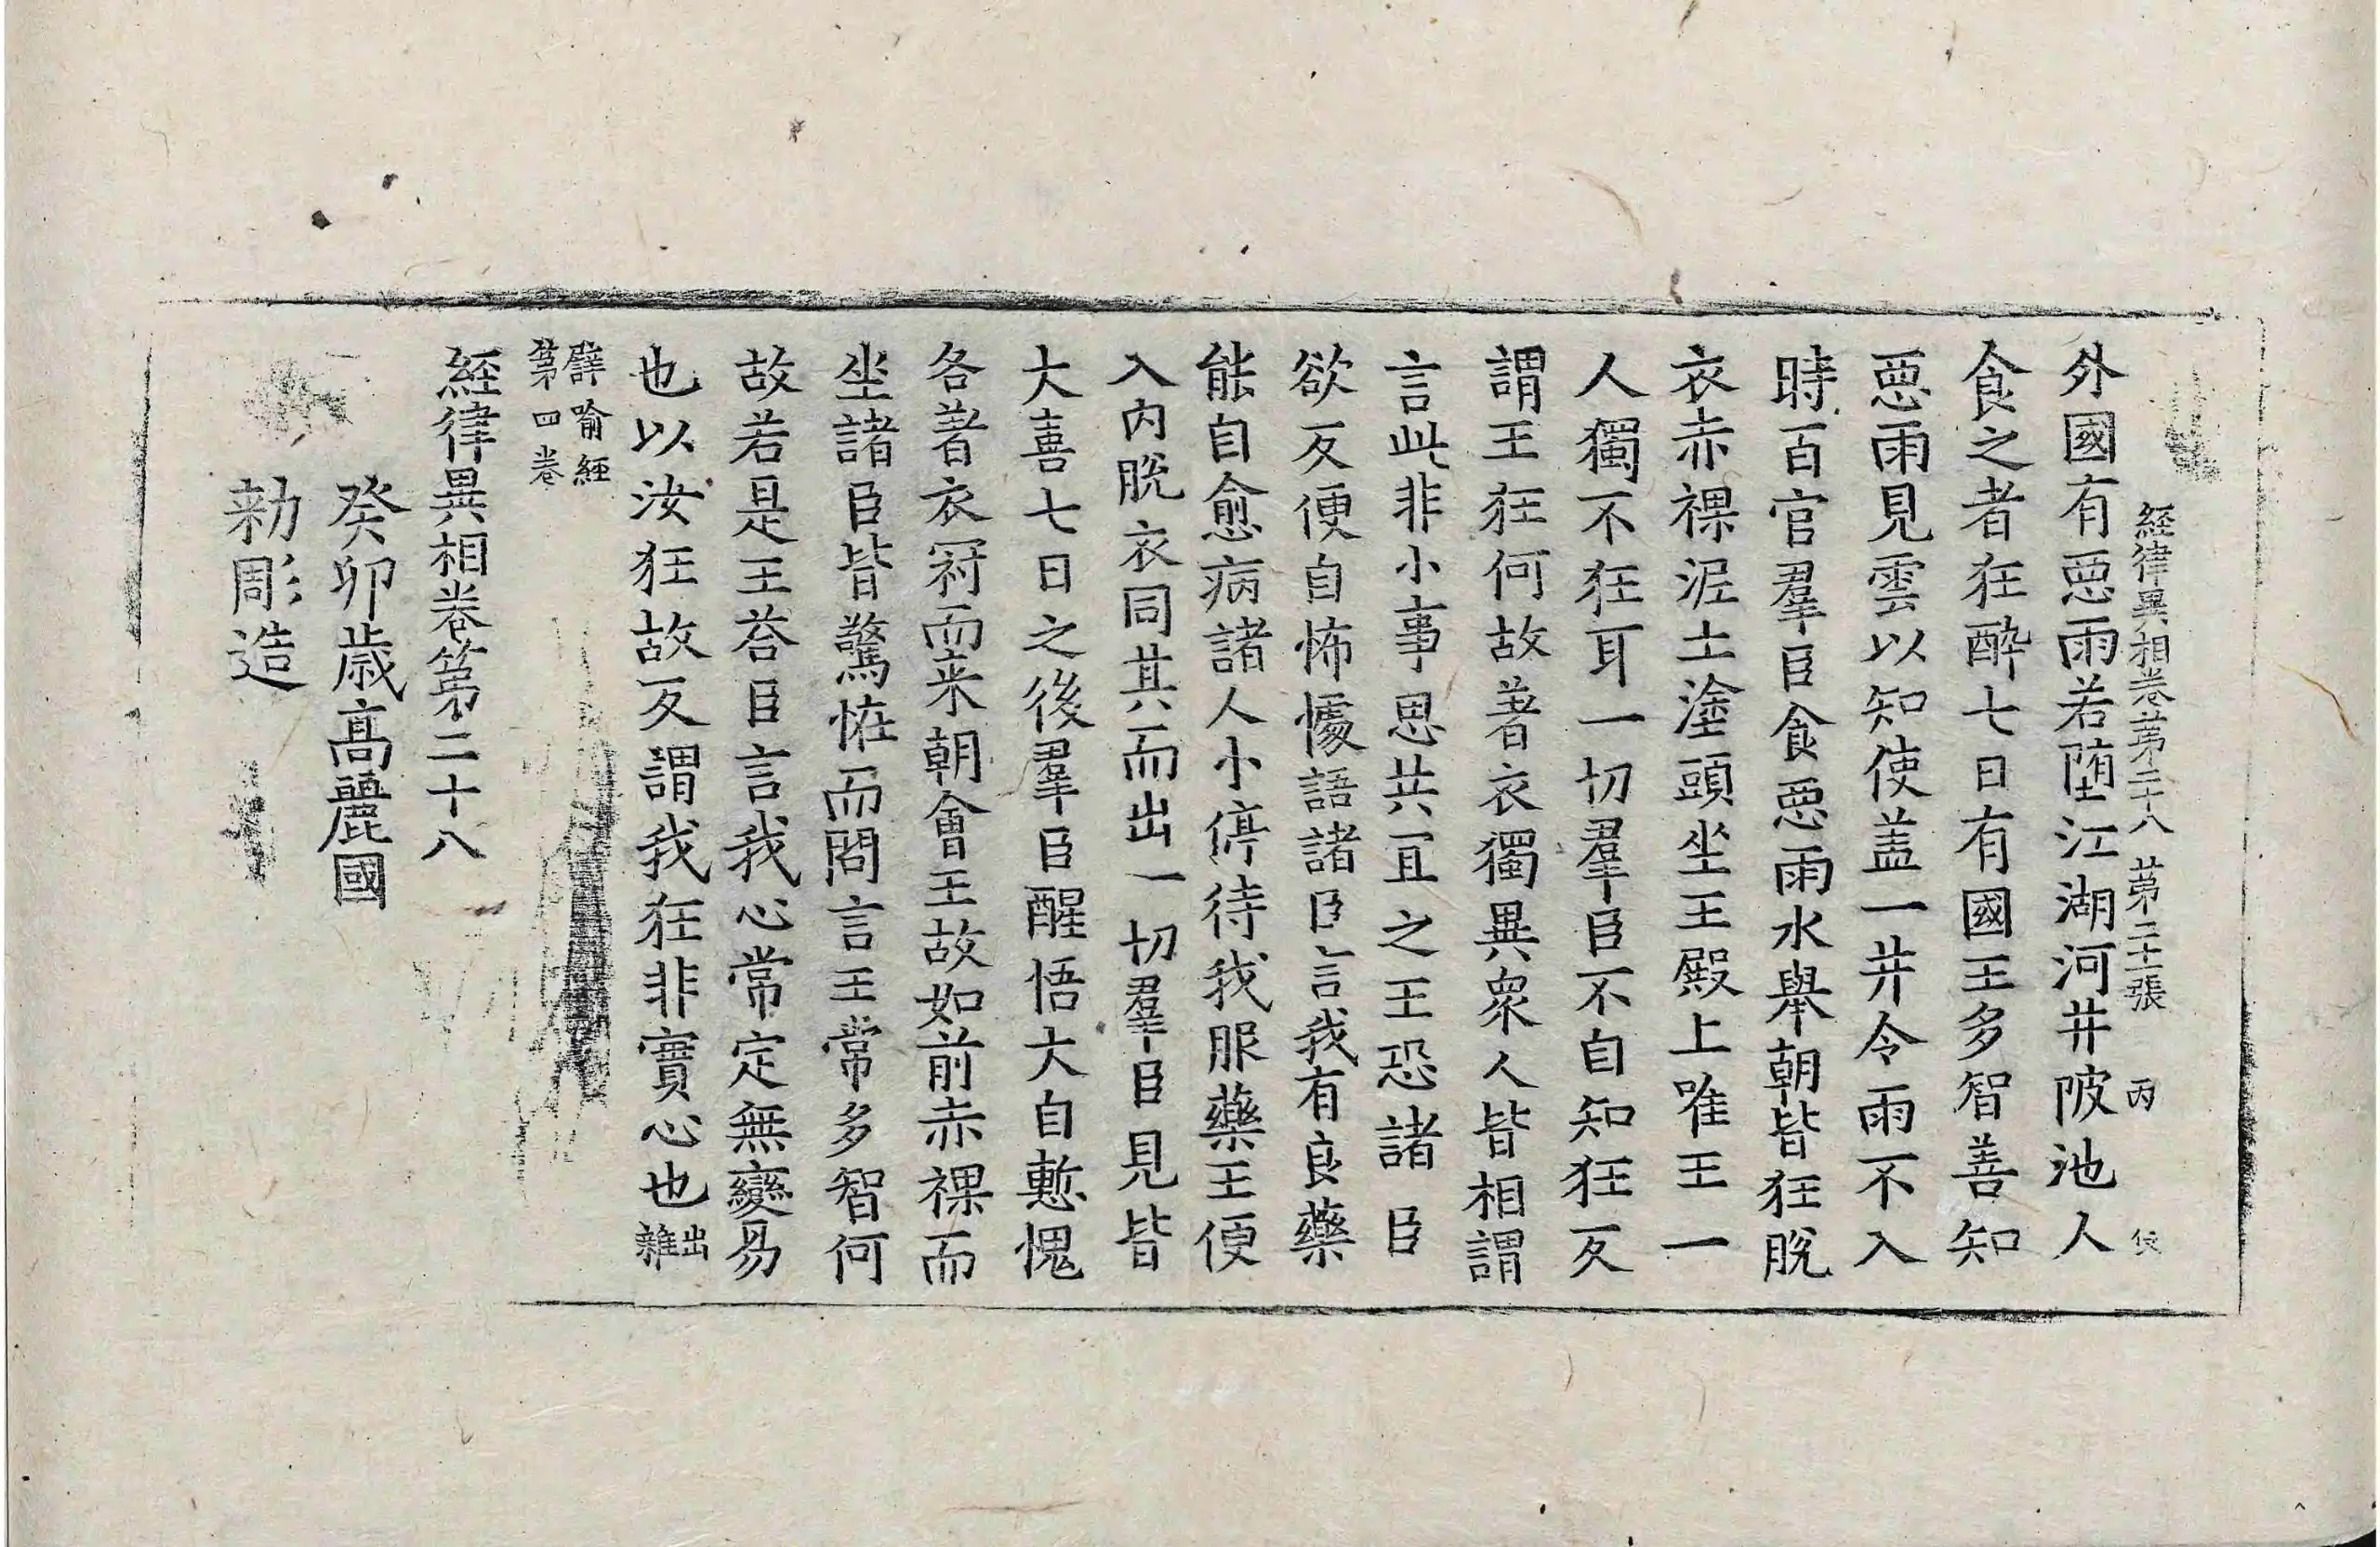 経律異相卷苐二十八 苐二十張 丙
外國有惡雨若墮江湖河井陂池人
食之者狂醉七日有國王多智善知
惡雨見雲以知使盖一井令雨不入
時百官羣臣食惡雨水舉朝皆狂脫
衣赤裸泥土塗頭坐王殿上唯王一
人獨不狂耳一切羣臣不自知狂反
謂王狂何故著衣獨異衆人皆相謂
言此非小事思共宜之王恐諸臣
欲反便自怖懅語諸臣言我有良藥
能自愈病諸人小停待我服藥王便
入內脫衣同其而出一切羣臣見皆
大喜七日之後羣臣醒悟大自慙愧
各著衣冠而来朝會王故如前赤裸而
坐諸臣皆驚恠而問言王常多智何
故若是王荅臣言我心常定無變易
也以汝狂故反謂我狂非實心也出雜
譬喻經
苐四卷
経律異相卷苐二十八
癸卯歳髙麗國
勅彫造